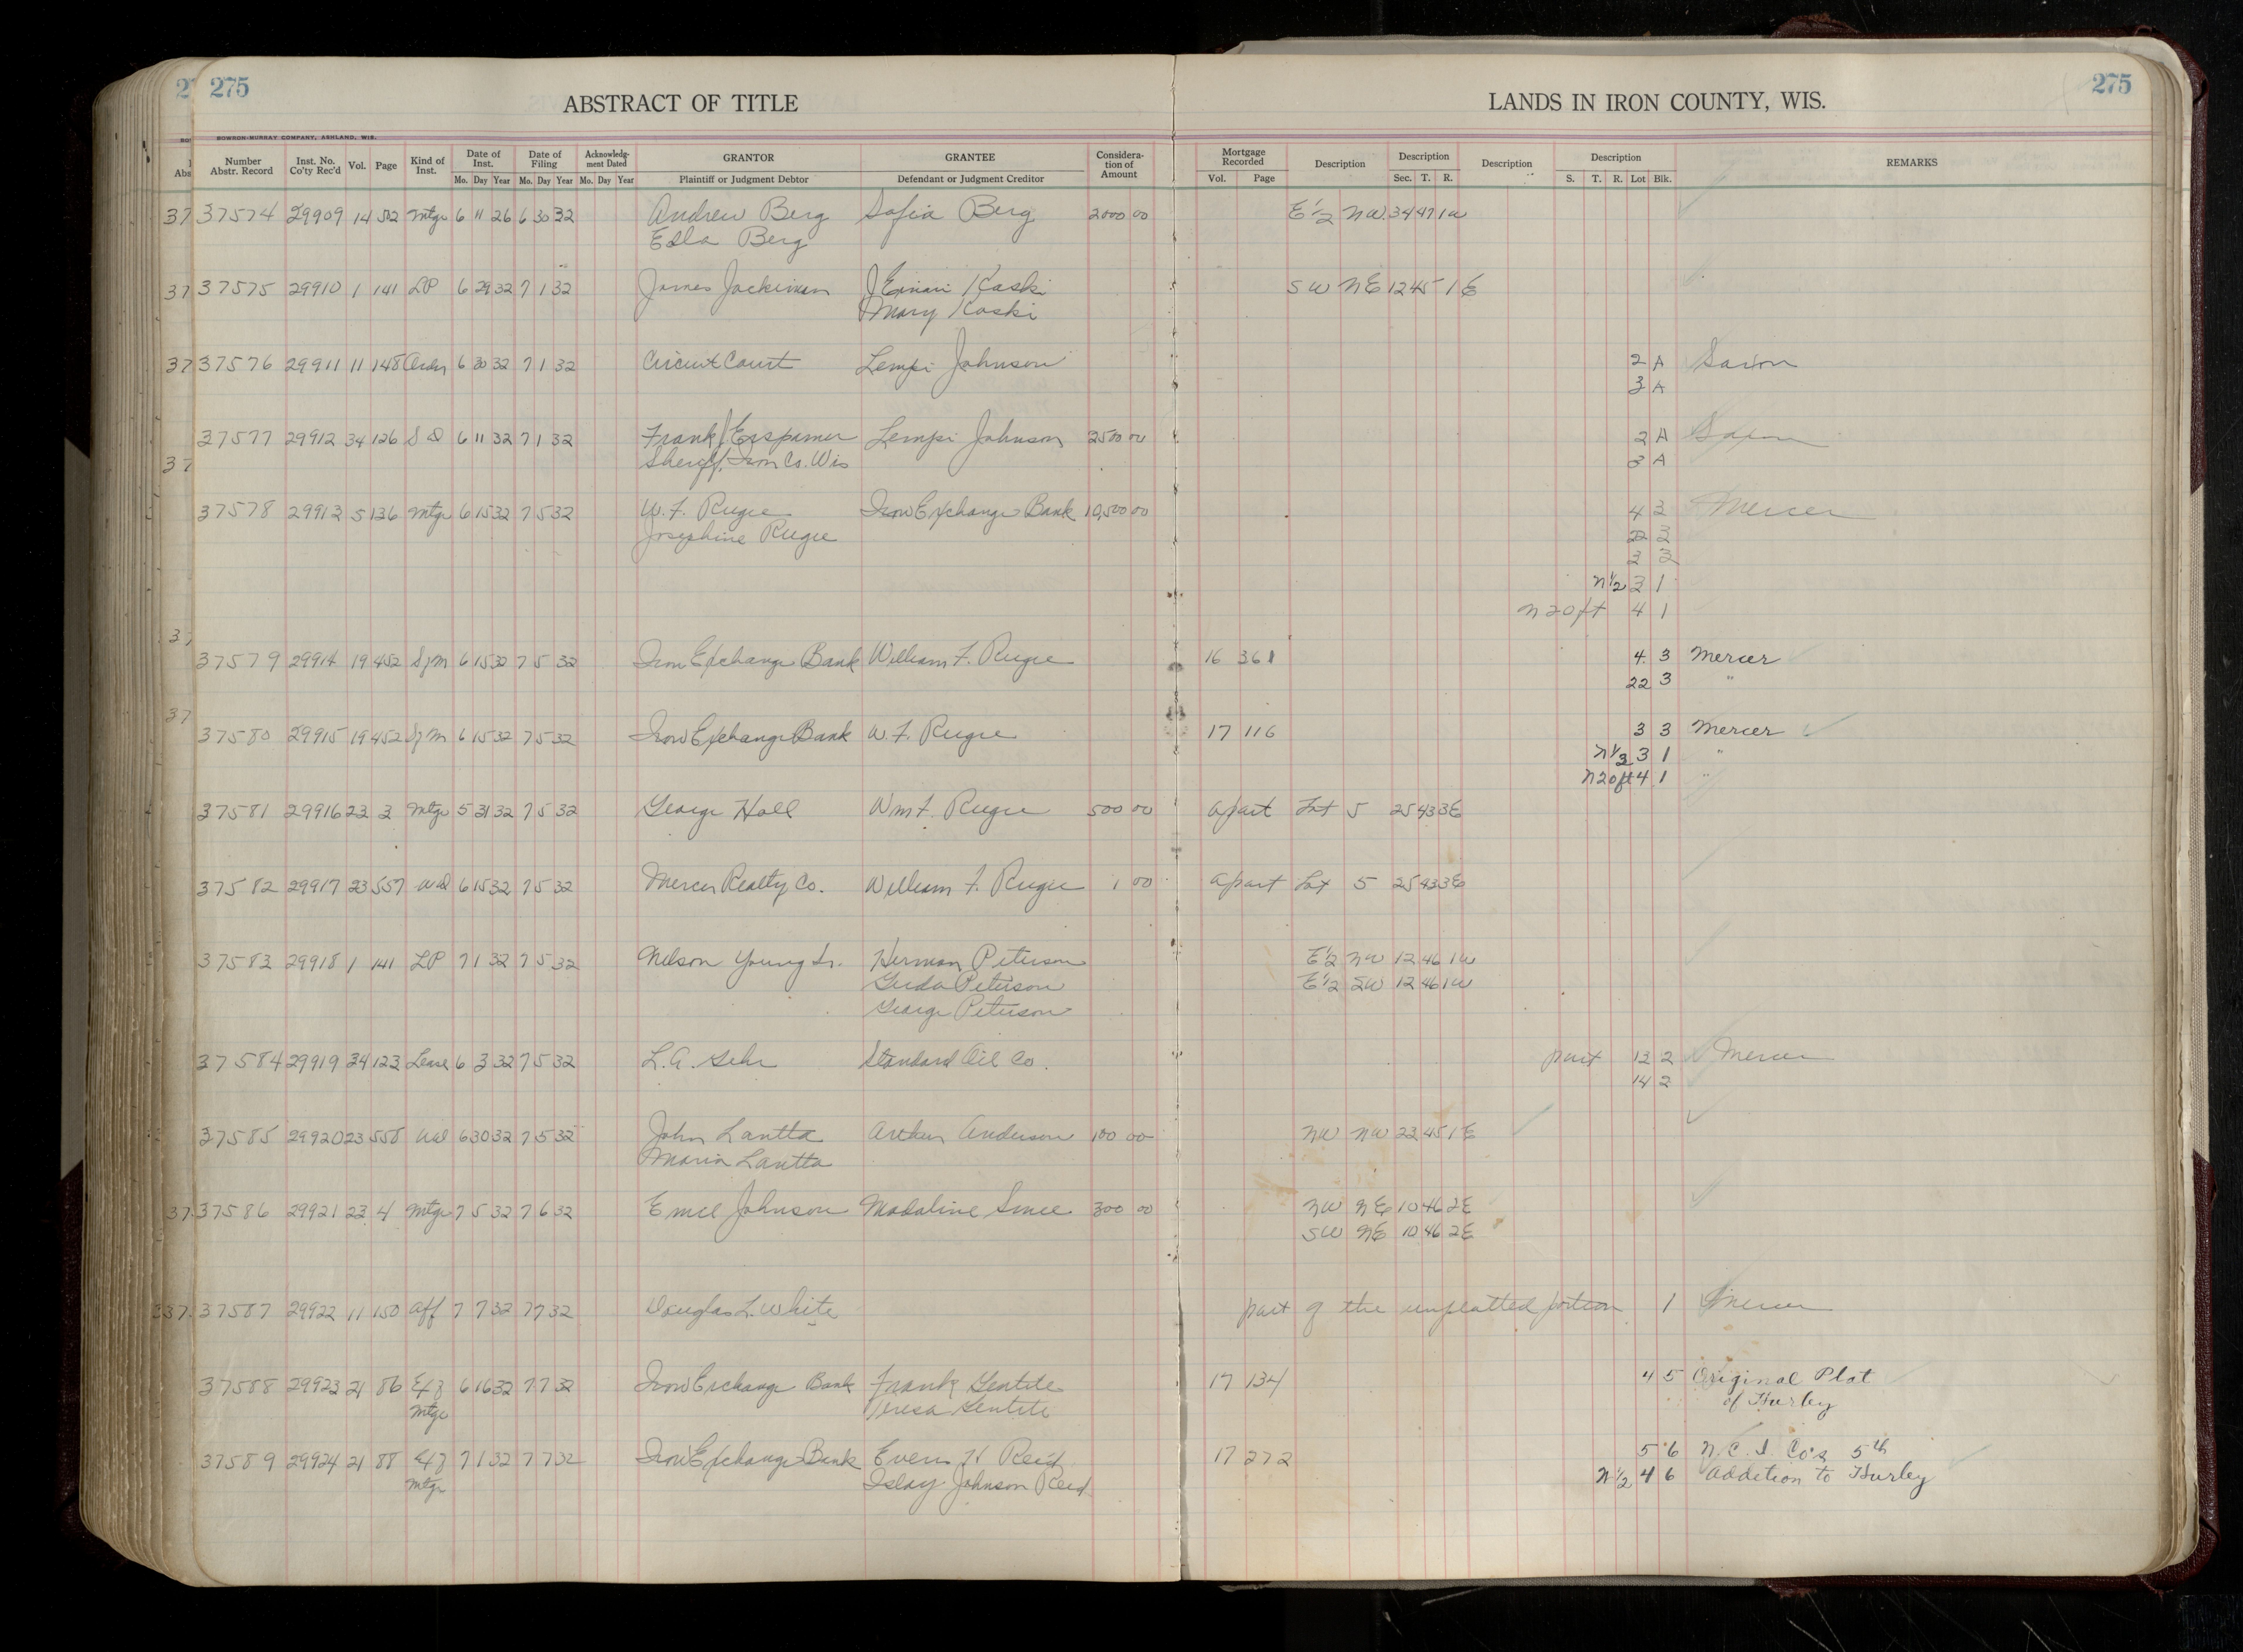 275
275
ABSTRACT OF TITLE
LANDS IN IRON COUNTY, WIS.
BOWRON-MURRAY COMPANY, ASHLAND, WIS.
Number Abstr. Record Inst. No. Co'ty Rec'd Vol. Page Kind of Inst. Date of Inst. Mo. Day Year Date of Filing Mo. Day Year Acknowledgment Dated Mo. Day Year GRANTOR Plaintiff or Judgment Debtor GRANTEE Defendant or Judgment Creditor Consideration of Amount Mortgage Recorded Vol. Page Description Description Sec. T. R. Description Description S. T. R. Lot Blk. REMARKS
37574 29909 14 502 Mtge 6 11 26 6 30 32 Andrew Berg Sofia Berg 2000 00 E 1/2 NW 34 47 1W
Edla Berg
37575 29910 1 141 LP 6 29 32 7 1 32 James Jackiman J Einari Koski SW NE 12 45 1E
Mary Koski
37576 29911 11 148 Order 6 30 32 7 1 32 Circuit Court Lempi Johnson 2 A Saxon
3 A
37577 29912 34 126 S D 6 11 32 7 1 32 Frank J Erspamer Lempi Johnson 2500 00 2 A Saxon
Sheriff, Iron Co. Wis 3 A
37578 29913 5 136 Mtge 6 15 32 7 5 32 W. F. Rugee Iron Exchange Bank 10,500 00 4 3 Mercer
Josephine Rugee 22 3
3 3
N 1/2 3 1
N 20 ft 4 1
37579 29914 19 452 S/M 6 15 32 7 5 32 Iron Exchange Bank William F. Rugee 16 361 4 3 Mercer
22 3 "
37580 29915 19 452 S/M 6 15 32 7 5 32 Iron Exchange Bank W. F. Rugee 17 116 3 3 Mercer
N 1/2 3 1 "
N 20 ft 4 1 "
37581 29916 23 3 Mtge 5 31 32 7 5 32 George Hall Wm F. Rugee 500 00 a part Lot 5 25 43 3E
37582 29917 23 557 WD 6 15 32 7 5 32 Mercer Realty Co. William F. Rugee 1 00 a part Lot 5 25 43 3E
37583 29918 1 141 LP 7 1 32 7 5 32 Nelson Young Sr. Herman Peterson E 1/2 NW 12 46 1W
Gerda Peterson E 1/2 SW 12 46 1W
George Peterson
37584 29919 34 123 Lease 6 3 32 7 5 32 L. A. Gehr Standard Oil Co. part 13 2 Mercer
14 2
37585 29920 23 558 WD 6 30 32 7 5 32 John Lantta Arthur Anderson 100 00 NW NW 23 45 1E
Maria Lantta
37586 29921 23 4 Mtge 7 5 32 7 6 32 Emil Johnson Madaline Smee 300 00 NW NE 10 46 2E
SW NE 10 46 2E
37587 29922 11 150 Aff 7 7 32 7 7 32 Douglas L. White part of the unplatted portion 1 Mercer
37588 29923 21 86 Ex of 6 16 32 7 7 32 Iron Exchange Bank Frank Gentile 17 134 4 5 Original Plat
Mtge Teresa Gentile of Hurley
37589 29924 21 88 Ex of 7 1 32 7 7 32 Iron Exchange Bank Evern H Reid 17 272 5 6 N. C. I. Co's 5th
Mtge Islay Johnson Reid N 1/2 4 6 Addition to Hurley